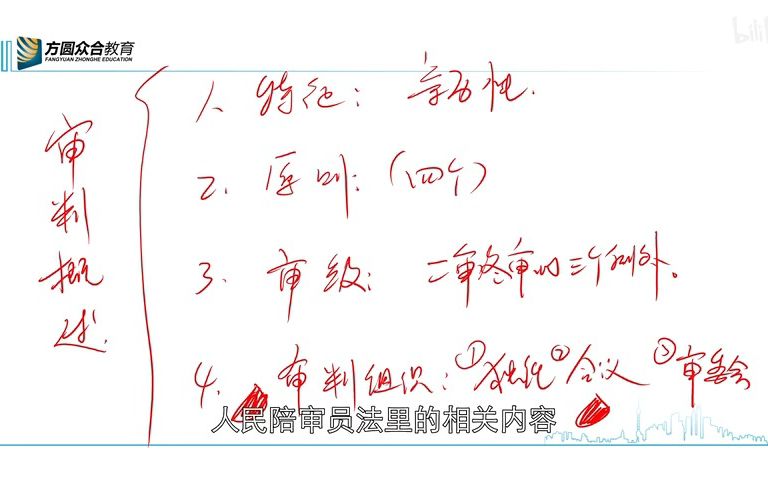 方圆众合教育
FANGYUAN ZHONGHE EDUCATION
bili
审判概述
1. 特征: 亲历性.
2. 原则: (四个)
3. 审级: 二审终审的三个例外。
4. 审判组织: ①独任 ②合议 ③审委会
人民陪审员法里的相关内容